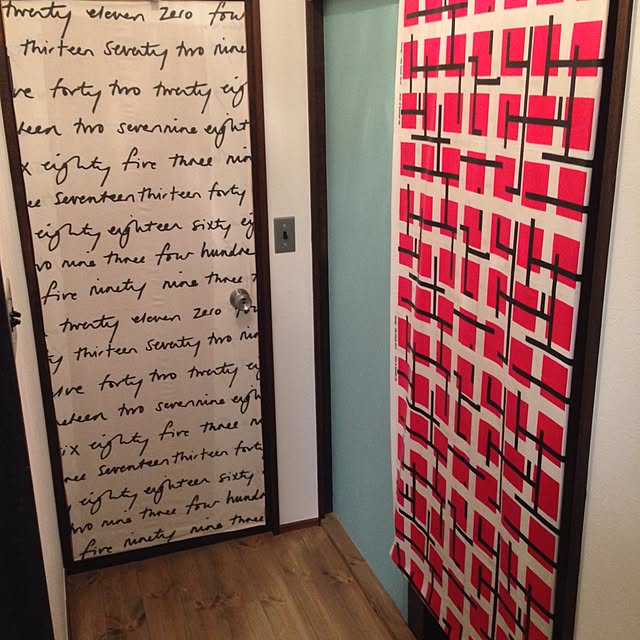 twenty eleven zero four
thirteen seventy two nine
ve forty two twenty eig
teen two sevennine eight
x eighty five three nin
ee seventeen thirteen forty
eighty eighteen sixty ei
wo nine three four hundre
five ninety nine three t
twenty eleven zero fo
ty thirteen seventy two nin
five forty two twenty ei
eteen two sevennine eigh
ix eighty five three n
ree seventeen thirteen fort
eighty eighteen sixty
two nine three four hund
five ninety nine three